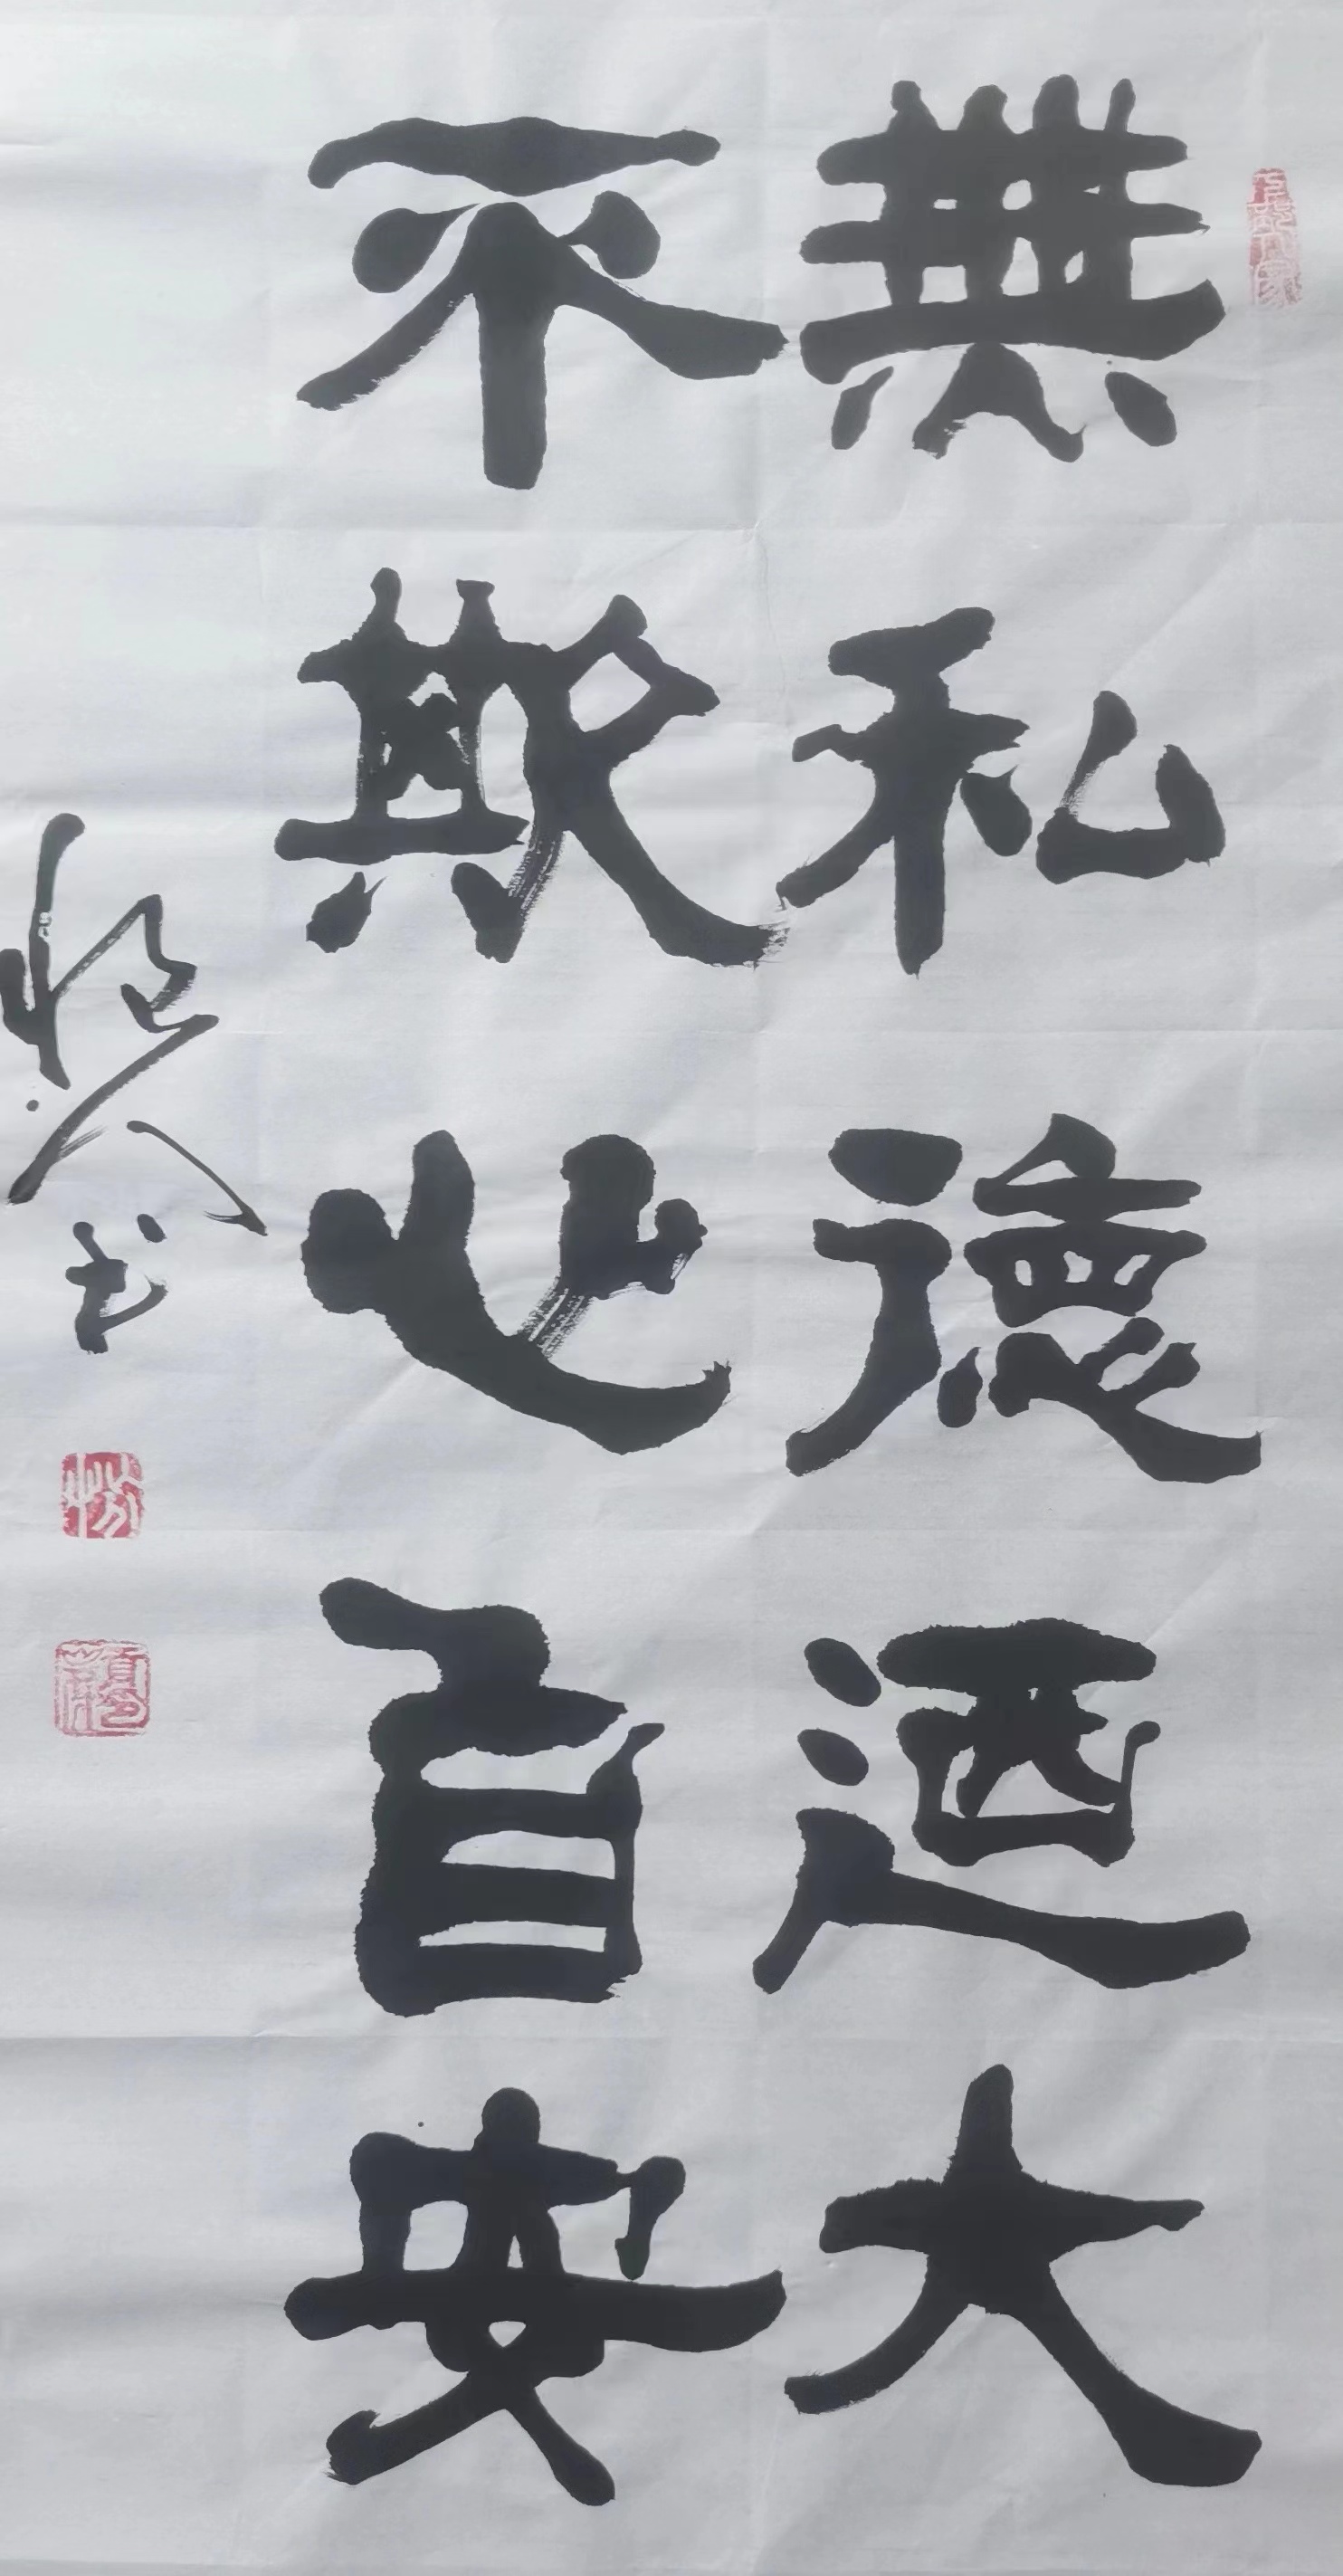 無私德迺大
不欺心自安